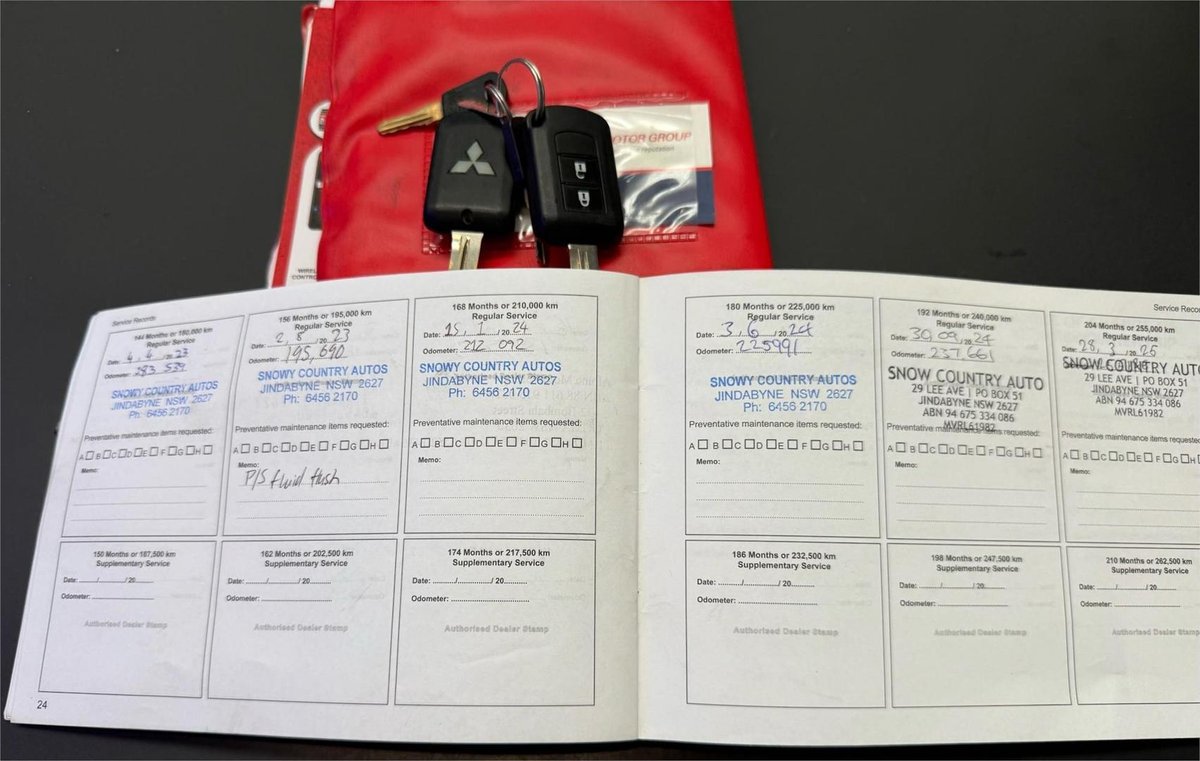 OTOR GROUP
reputation
WIREL
CONTRO
Service Records
144 Months or 180,000 km
Regular Service
Date: 4. 4. /20 23
Odometer:
SNOWY COUNTRY AUTOS
JINDABYNE NSW 2627
Ph: 6456 2170
Preventative maintenance items requested:
A B C D E F G H
Memo:
156 Months or 195,000 km
Regular Service
Date: 2 / 8 /20 23
Odometer: 195,690
SNOWY COUNTRY AUTOS
JINDABYNE NSW 2627
Ph: 6456 2170
Preventative maintenance items requested:
A B C D E F G H
Memo:
P/S fluid flush
168 Months or 210,000 km
Regular Service
Date: 15 / 1 / 20 24
Odometer: 212 092
SNOWY COUNTRY AUTOS
JINDABYNE NSW 2627
Ph: 6456 2170
Preventative maintenance items requested:
A B C D E F G H
Memo:
150 Months or 187,500 km
Supplementary Service
Date: / / 20
Odometer:
Authorised Dealer Stamp
162 Months or 202,500 km
Supplementary Service
Date: / / 20
Odometer:
Authorised Dealer Stamp
174 Months or 217,500 km
Supplementary Service
Date: / / 20
Odometer:
Authorised Dealer Stamp
24
Service Recor
180 Months or 225,000 km
Regular Service
Date: 3 / 6 / 20 24
Odometer: 225991
SNOWY COUNTRY AUTOS
JINDABYNE NSW 2627
Ph: 6456 2170
Preventative maintenance items requested:
A B C D E F G H
Memo:
192 Months or 240,000 km
Regular Service
Date: 30/09/20 24
Odometer: 237,661
SNOW COUNTRY AUTO
29 LEE AVE | PO BOX 51
JINDABYNE NSW 2627
ABN 94 675 334 086
MVRL61982
Preventative maintenance items requested:
A B C D E F G H
Memo:
204 Months or 255,000 km
Regular Service
Date: 28 / 3 / 20 25
SNOW COUNTRY AUT
29 LEE AVE | PO BOX 51
JINDABYNE NSW 2627
ABN 94 675 334 086
MVRL61982
Preventative maintenance items requeste
A B C D E F G H
Memo:
186 Months or 232,500 km
Supplementary Service
Date: / / 20
Odometer:
Authorised Dealer Stamp
198 Months or 247,500 km
Supplementary Service
Date: / / 20
Odometer:
Authorised Dealer Stamp
210 Months or 262,500 km
Supplementary Service
Date: / / 20
Odometer:
Authorised Dealer Stamp